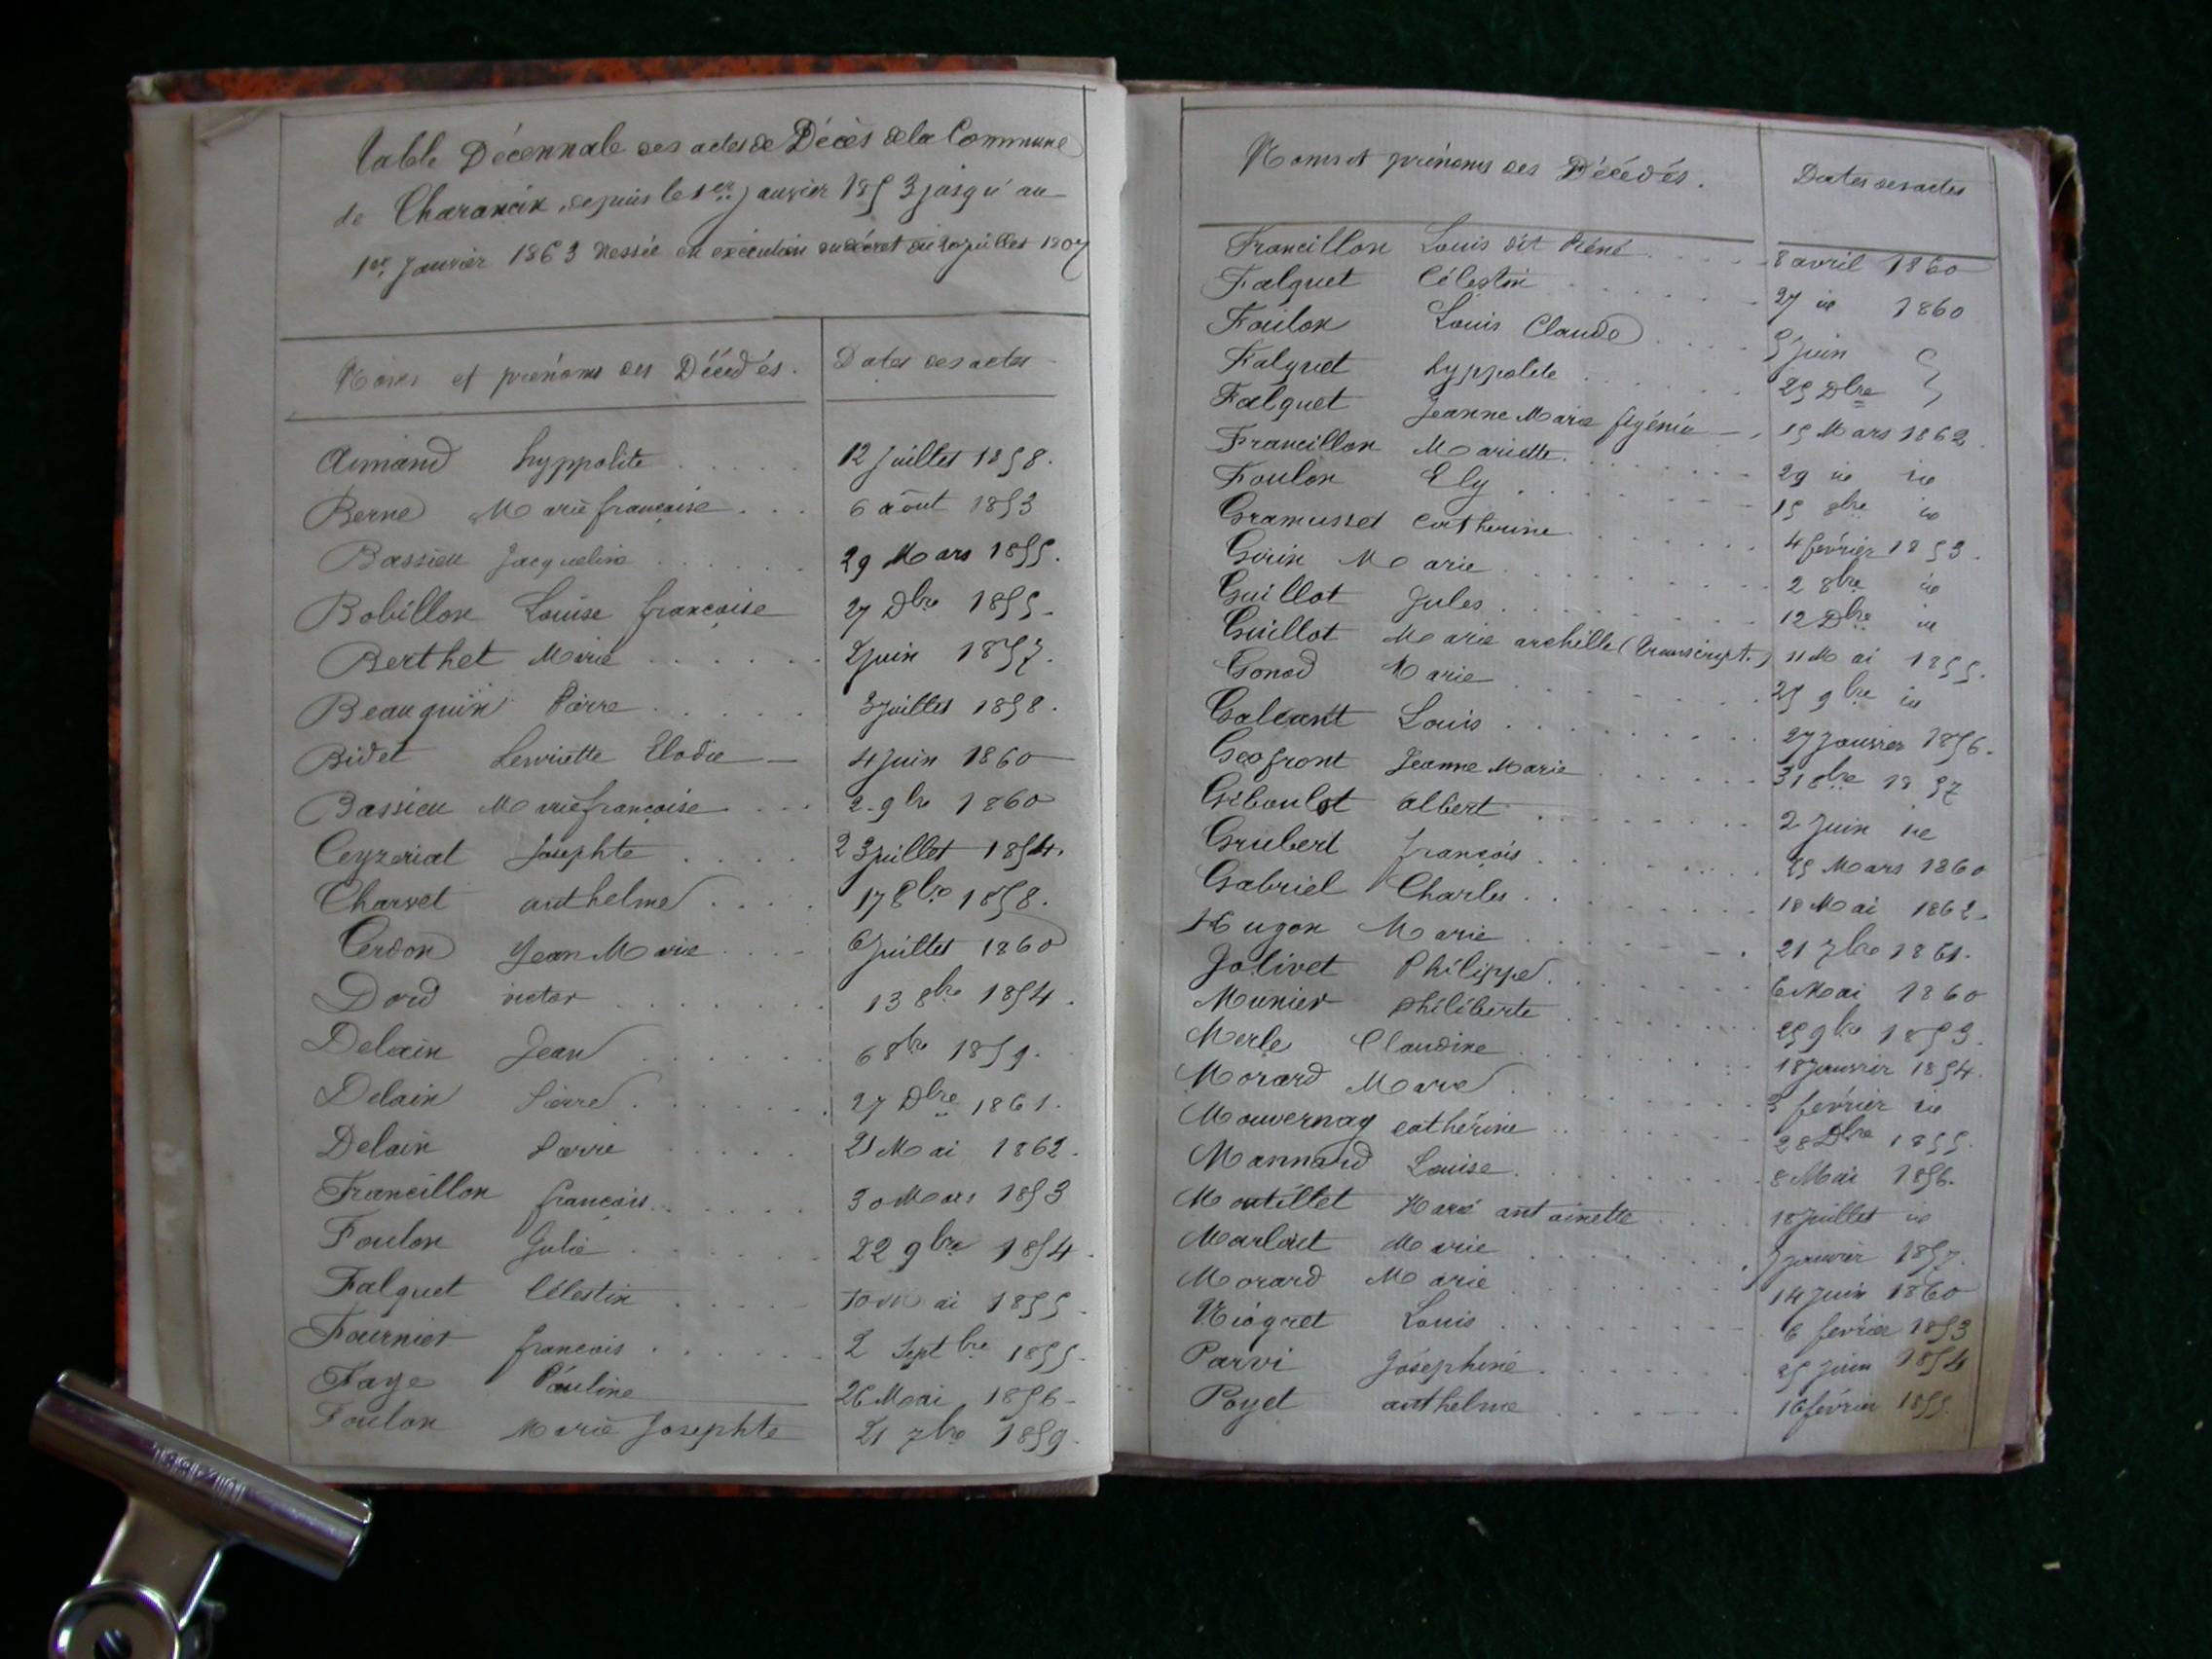 Table Décennale des actes de Décès de la Commune
de Charancin, depuis le 1er. janvier 1853 jusqu'au
1er. Janvier 1863 dressée en exécution du décret du 20 juillet 1807
Noms et prénoms des Décédés. Dates des actes
Aimand hyppolite 12 juillet 1858.
Berne Marie françoise 6 août 1853
Bassieu Jacqueline 29 Mars 1855.
Bobillon Louise françoise 27 Dbre 1855
Berthet Marie juin 1857.
Beauquin Pierre 3 juillet 1858.
Bidet henriette Elodie 4 juin 1860
Bassieu Marie françoise 2 9bre 1860
Ceyzeriat Josephte 23 juillet 1854.
Charvet anthelme 17 8bre 1858.
Cerdon Jean Marie 6 juillet 1860
Dord victor 13 8bre 1854.
Delain Jean 6 8bre 1859.
Delain Pierre 27 Dbre 1861.
Delain Pierre 21 Mai 1862.
Francillon françois 30 Mars 1853
Foulon Julie 22 9bre 1854.
Falquet Célestin 10 Mai 1855.
Fournier françois 2 Septbre 1855.
Faye Pauline 26 Mai 1856
Foulon Marie Josephte 21 7bre 1859.
Noms et prénoms des Décédés. Dates des actes
Francillon Louis dit Réné 8 avril 1860
Falquet Célestin 27 id 1860
Foulon Louis Claude 5 juin
Falquet hyppolite 25 Dbre
Falquet Jeanne Marie 15 Mars 1862.
Francillon Mariette 29 id id
Foulon Ely 15 8bre id
Gramusset Catherine 4 février 1853.
Guin Marie 2 8bre id
Guillot Jules 12 Dbre id
Guillot Marie archille (transcript.) 11 Mai 1855.
Gonod Marie 25 9bre id
Galeant Louis 27 Janvier 1856.
Geofront Jeanne Marie 31 8bre 1857
Giboulot albert 2 juin id
Grubert françois 25 Mars 1860
Gabriel Charles 18 Mai 1862.
Hugon Marie 21 7bre 1861.
Jolivet Philippe 6 Mai 1860
Munier philiberte 25 9bre 1853.
Merle Claudine 18 Janvier 1854.
Morard Marie 3 février id
Mouvernay cathérine 28 Dbre 1855.
Mannard Louise 8 Mai 1856.
Montillet Marie antoinette 18 juillet id
Marlait Marie janvier 1857.
Morard Marie 14 juin 1860
Niogret Louis 6 février 1853
Parvi Joséphine 25 juin 1854
Poyet anthelme 16 février 1855.